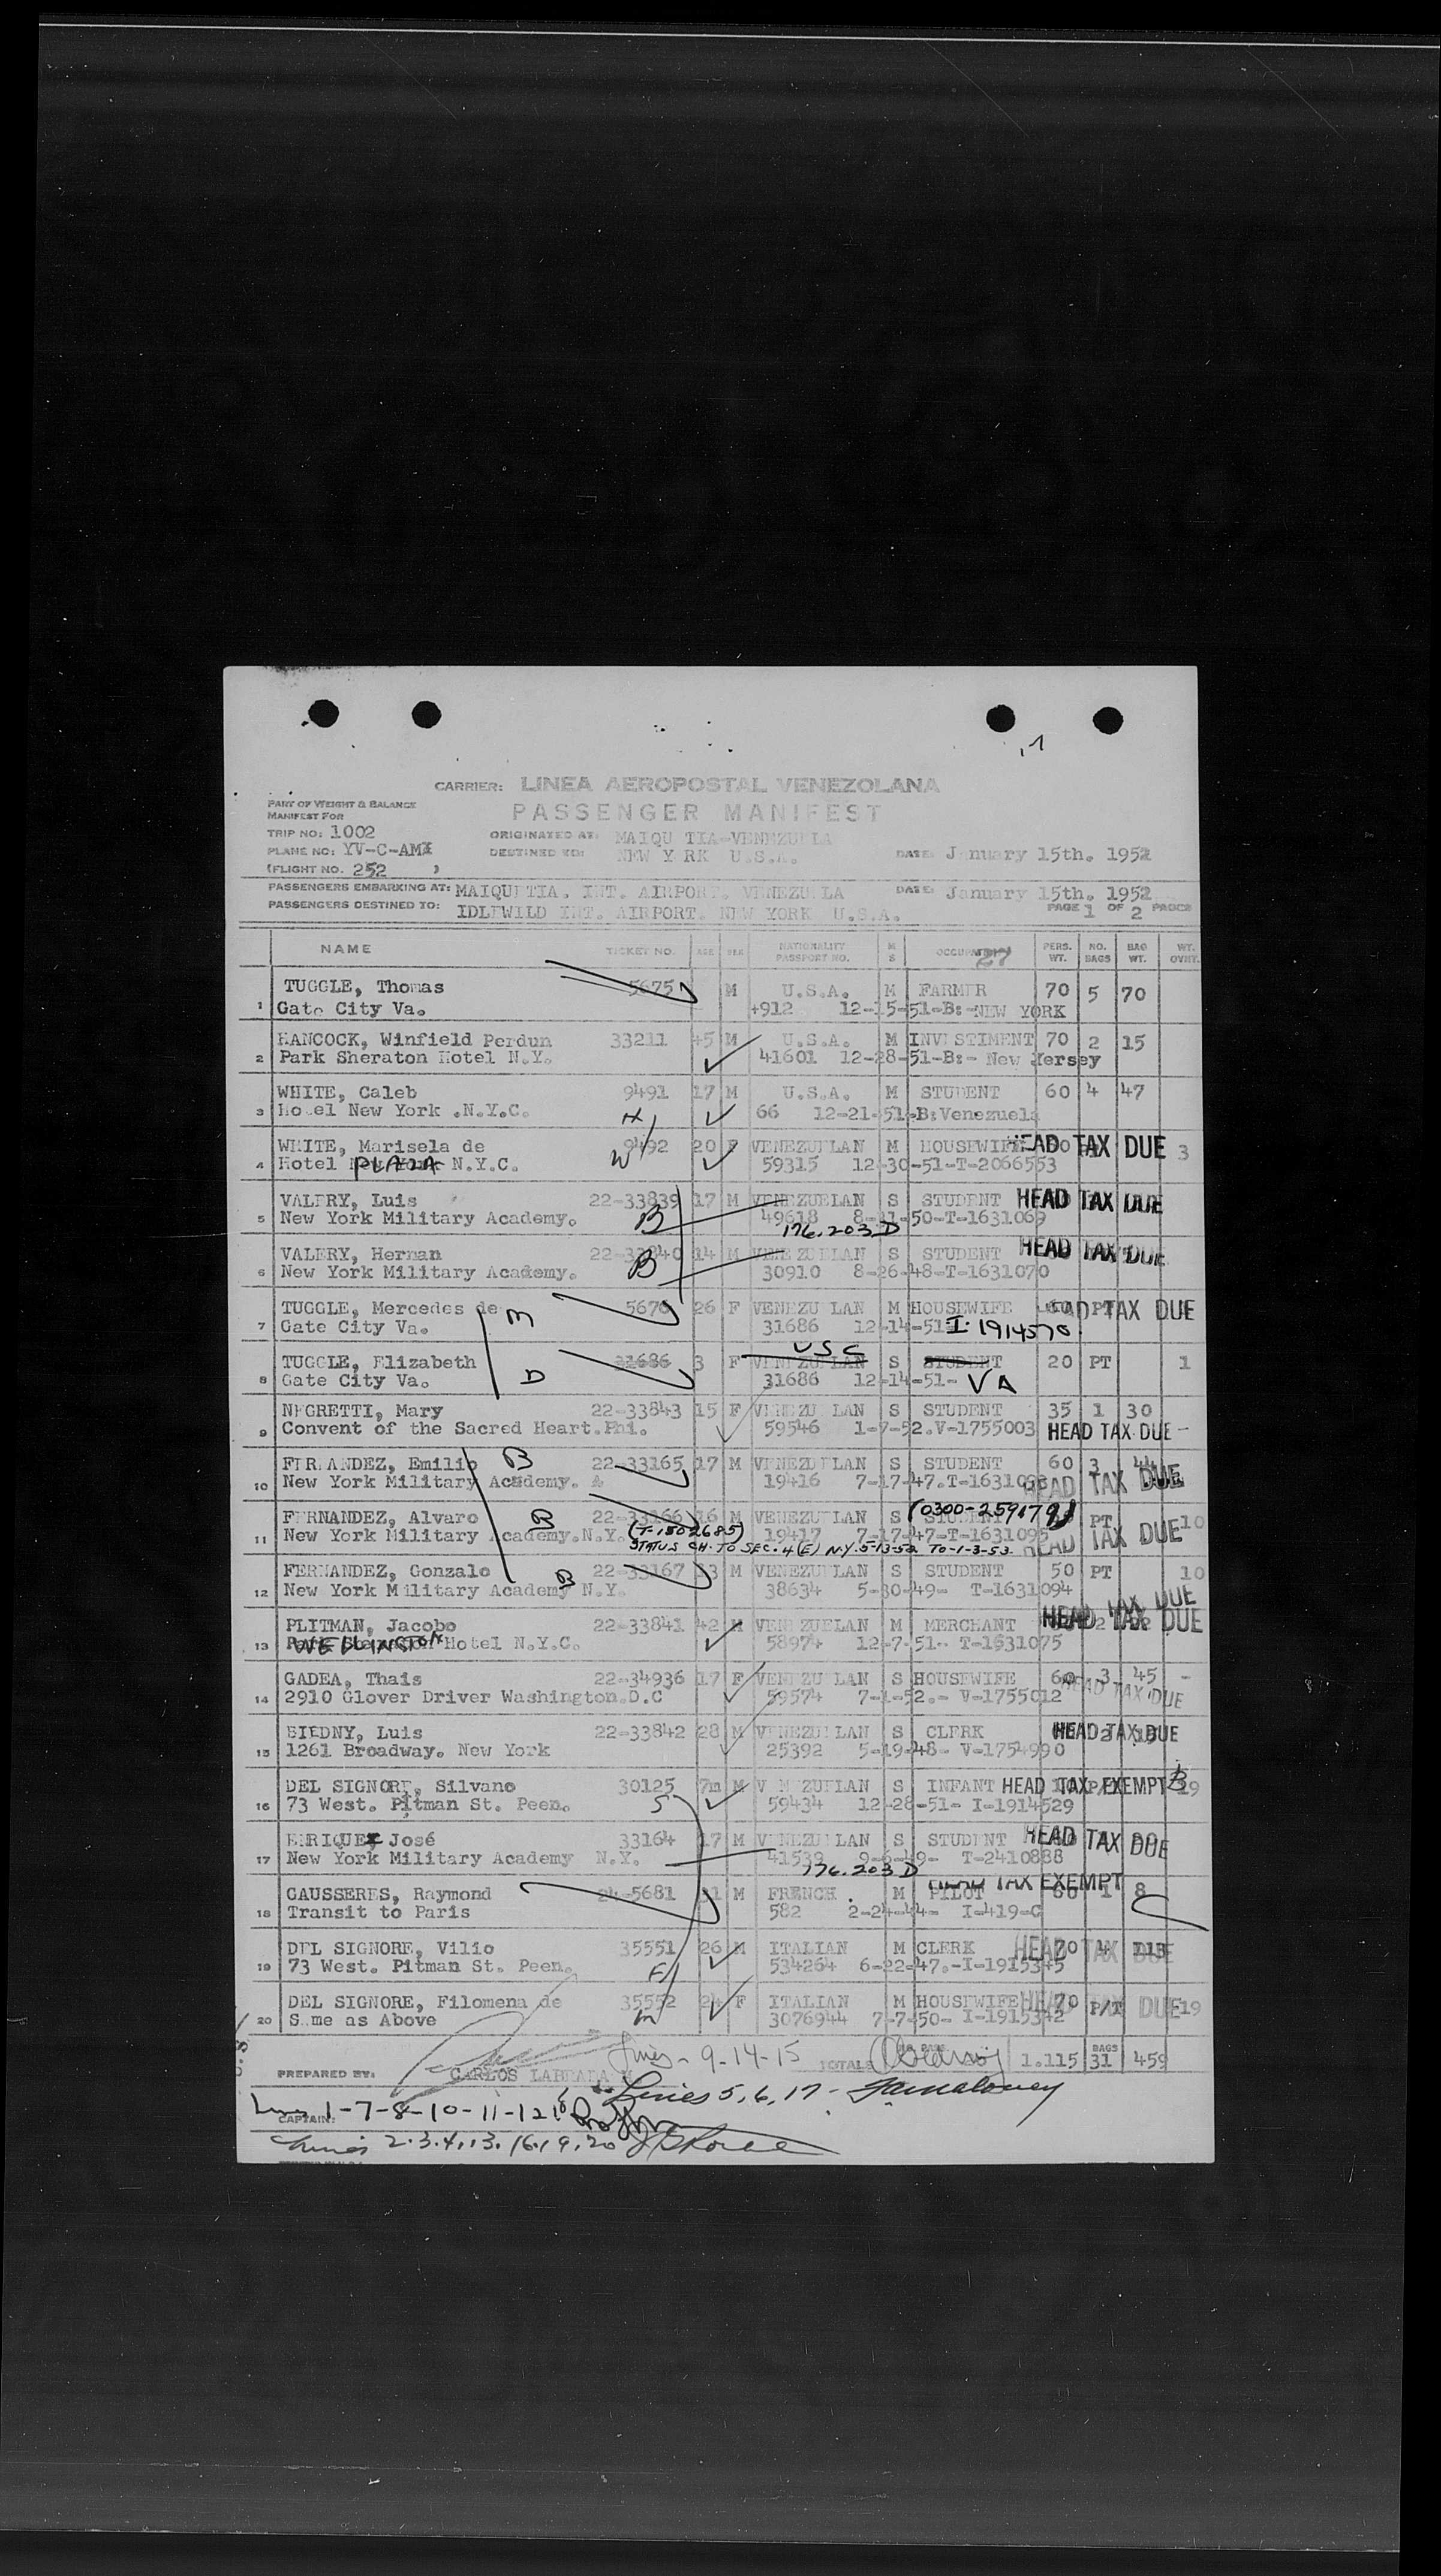 CARRIER: LINEA AEROPOSTAL VENEZOLANA
PASSENGER MANIFEST
PART OF WEIGHT & BALANCE
MANIFEST FOR
TRIP NO: 1002
PLANE NO: YV-C-AMX
(FLIGHT NO. 252 )
ORIGINATED AT: MAIQU TIA-VENEZUELA
DESTINED TO: NEW Y RK U.S.A. DATE: January 15th. 1952
PASSENGERS EMBARKING AT: MAIQUETIA. INT. AIRPORT. VENEZUELA DATE: January 15th. 1952
PASSENGERS DESTINED TO: IDLEWILD INT. AIRPORT. NEW YORK U.S.A. PAGE 1 OF 2 PAGES
NAME TICKET NO. AGE SEX NATIONALITY PASSPORT NO. M S OCCUPATION 27 PERS. WT. NO. BAGS BAG WT. WT. OVHT.
TUGGLE, Thomas 5675 M U.S.A. M FARMER 70 5 70
1 Gate City Va. 4912 12-15-51-B:-NEW YORK
HANCOCK, Winfield Perdun 33211 45 M U.S.A. M INVESTIMENT 70 2 15
2 Park Sheraton Hotel N.Y. 41601 12-28-51-B:- New Jersey
WHITE, Caleb 9491 17 M U.S.A. M STUDENT 60 4 47
3 Hotel New York .N.Y.C. H 66 12-21-51-B:Venezuela
WHITE, Marisela de 9492 20 F VENEZUELAN M HOUSEWIFE HEAD TAX DUE 3
4 Hotel PLAZA N.Y.C. W 59315 12-30-51-T-2066553
VALERY, Luis 22-33839 17 M VENEZUELAN S STUDENT HEAD TAX DUE
5 New York Military Academy. B 49618 8-11-50-T-1631069
176.203 D
VALERY, Herman 22-33840 14 M VENEZUELAN S STUDENT HEAD TAX DUE
6 New York Military Academy. B 30910 8-26-48-T-1631070
TUGGLE, Mercedes de M 5676 26 F VENEZU LAN M HOUSEWIFE HEAD TAX DUE
7 Gate City Va. 31686 12-14-51 I-1914570
USC
TUGGLE, Elizabeth 31686 3 F VENEZUELAN S STUDENT 20 PT 1
8 Gate City Va. D 31686 12-14-51- VA
NEGRETTI, Mary 22-33843 15 F VENEZU LAN S STUDENT 35 1 30
9 Convent of the Sacred Heart.Phi. 59546 1-7-52.V-1755003 HEAD TAX DUE -
FERNANDEZ, Emilio B 22-33165 17 M VENEZUELAN S STUDENT 60 3
10 New York Military Academy. 19416 7-17-47.T-1631093 HEAD TAX DUE
FERNANDEZ, Alvaro B 22-33166 16 M VENEZUELAN S STUDENT (0300-259179) PT 10
11 New York Military Academy.N.Y. (T-1502685) 19417 7-17-47-T-1631095 HEAD TAX DUE
STATUS CH. TO SEC. 4(E) N.Y. 5-13-52 TO-1-3-53
FERNANDEZ, Gonzalo 22-33167 13 M VENEZUELAN S STUDENT 50 PT 10
12 New York Military Academy B N.Y. 38634 5-30-49- T-1631094
HEAD TAX DUE
PLITMAN, Jacobo 22-33841 42 M VENEZUELAN M MERCHANT HEAD TAX DUE
13 WELLINGTON Hotel N.Y.C. 58974 12-7-51.. T-1631075
GADEA, Thais 22-34936 17 F VENEZU LAN S HOUSEWIFE 60 3 45 -
14 2910 Glover Driver Washington.D.C 59574 7-1-52.- V-1755012 HEAD TAX DUE
BIEDNY, Luis 22-33842 28 M VENEZUELAN S CLERK HEAD TAX DUE
15 1261 Broadway. New York 25392 5-19-48- V-1754990
DEL SIGNORE, Silvano 30125 7m M VENEZUELAN S INFANT HEAD TAX EXEMPT 19
16 73 West. Pitman St. Peen. S 59434 12-28-51- I-1914529
ENRIQUEZ José 33164 17 M VENEZUELAN S STUDENT HEAD TAX DUE
17 New York Military Academy N.Y. 41539 9-6-49- T-2410888
176.203 D
HEAD TAX EXEMPT
GAUSSERES, Raymond 24-5681 31 M FRENCH . M PILOT 60 1 8
18 Transit to Paris 582 2-24-44- I-419-C
DEL SIGNORE, Vilio 35551 26 M ITALIAN M CLERK 70 4 113 HEAD TAX DUE
19 73 West. Pitman St. Peen. F 534264 6-22-47.-I-1915345
DEL SIGNORE, Filomena de 35552 24 F ITALIAN M HOUSEWIFE 70 P/T HEAD TAX DUE 19
20 Same as Above M 3076944 7-7-50- I-1915342
Lines - 9-14-15 TOTALS 1.115 BAGS 31 459
PREPARED BY: CARLOS LABRADA
Lines 5, 6, 17 -
Lines 1-7-8-10-11-12
CAPTAIN:
Lines 2.3.4.13.16.19.20